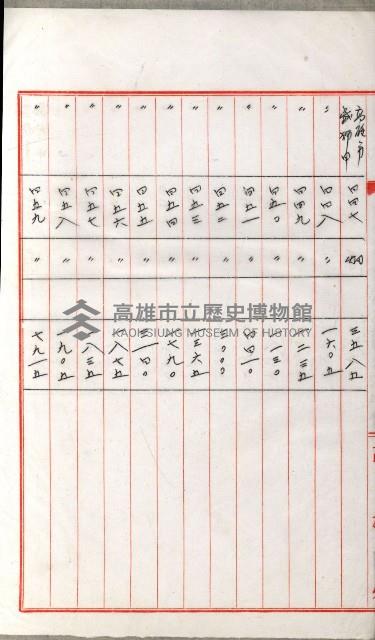 高雄市
戲獅甲 四四七 三五八五
〃 四四八 〃 一六〇五
〃 四四九 〃 一二三五
〃 四五〇 〃 一三〇
〃 四五一 〃
〃 四五二 〃
〃 四五三 〃 三六五
〃 四五四 〃 七九〇
〃 四五五 〃 三一四〇
〃 四五六 〃 八七五
〃 四五七 〃 八三五
〃 四五八 〃 九〇五
〃 四五九 〃 七九一五
高雄市立歷史博物館
KAOHSIUNG MUSEUM OF HISTORY